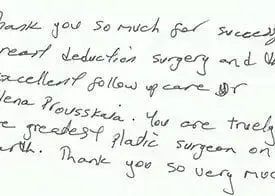 hank you so much for success
reast deduction surgery and
xcellent follow up care Dr
lena Prousskaia. You are truely
e greatest plastic surgeon on
arth. Thank you so very muc